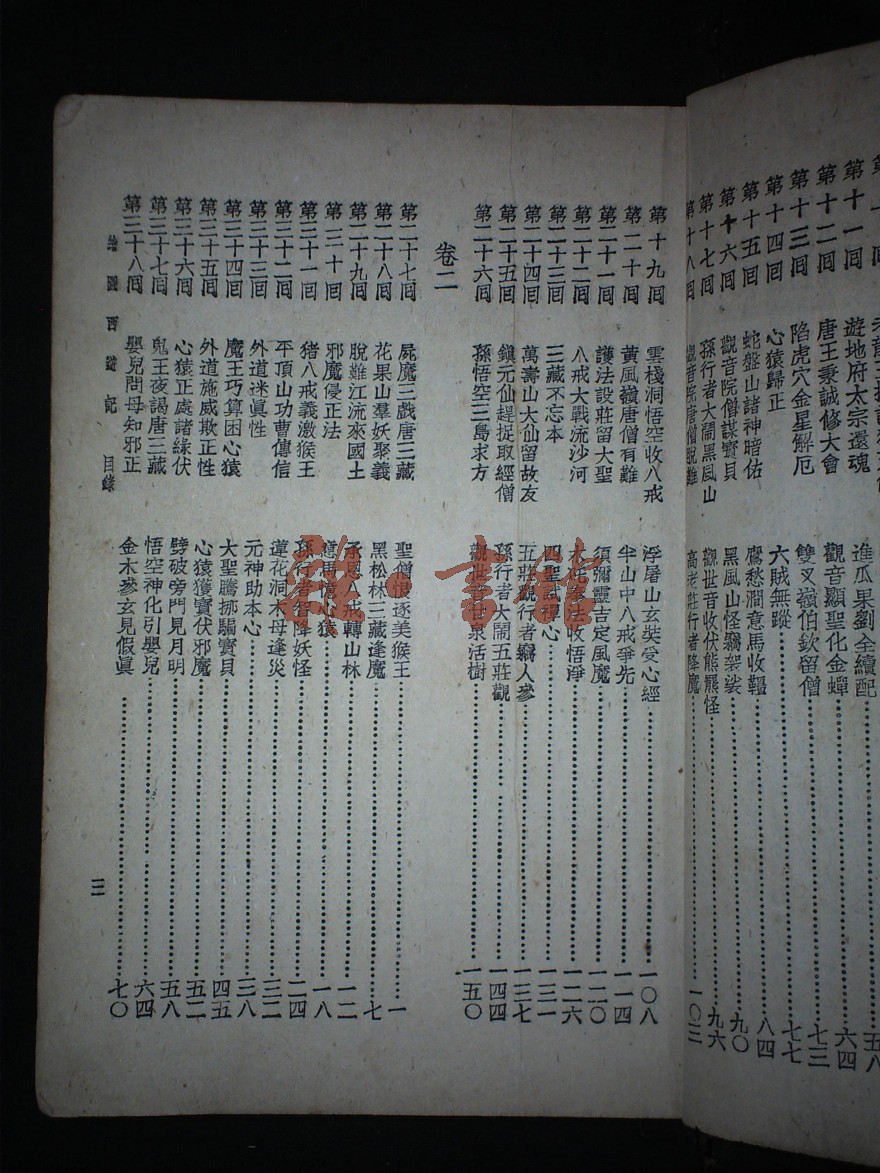 第十一回 遊地府太宗還魂 進瓜果劉全續配 五八
第十二回 唐王秉誠修大會 觀音顯聖化金蟬 六四
第十三回 陷虎穴金星解厄 雙叉嶺伯欽留僧 七三
第十四回 心猿歸正 六賊無蹤 七七
第十五回 蛇盤山諸神暗佑 鷹愁澗意馬收韁 八四
第十六回 觀音院僧謀寶貝 黑風山怪竊袈裟 九〇
第十七回 孫行者大鬧黑風山 觀世音收伏熊羆怪 九六
第十八回 觀音院唐僧脫難 高老莊行者降魔 一〇三
第十九回 雲棧洞悟空收八戒 浮屠山玄奘受心經 一〇八
第二十回 黃風嶺唐僧有難 半山中八戒爭先 一一四
第二十一回 護法設莊留大聖 須彌靈吉定風魔 一二〇
第二十二回 八戒大戰流沙河 木叱奉法收悟淨 一二六
第二十三回 三藏不忘本 四聖試禪心 一三一
第二十四回 萬壽山大仙留故友 五莊觀行者竊人參 一三七
第二十五回 鎭元仙趕捉取經僧 孫行者大鬧五莊觀 一四四
第二十六回 孫悟空三島求方 觀世音甘泉活樹 一五〇
卷二
第二十七回 屍魔三戲唐三藏 聖僧恨逐美猴王 一
第二十八回 花果山羣妖聚義 黑松林三藏逢魔 七
第二十九回 脫難江流來國土 承恩八戒轉山林 一二
第三十回 邪魔侵正法 意馬憶心猿 一八
第三十一回 猪八戒義激猴王 孫行者智降妖怪 二四
第三十二回 平頂山功曹傳信 蓮花洞木母逢災 三二
第三十三回 外道迷眞性 元神助本心 三八
第三十四回 魔王巧算困心猿 大聖騰挪騙寶貝 四五
第三十五回 外道施威欺正性 心猿獲寶伏邪魔 五二
第三十六回 心猿正處諸緣伏 劈破旁門見月明 五八
第三十七回 鬼王夜謁唐三藏 悟空神化引嬰兒 六四
第三十八回 嬰兒問母知邪正 金木參玄見假眞 七〇
繪圖西遊記 目錄 三